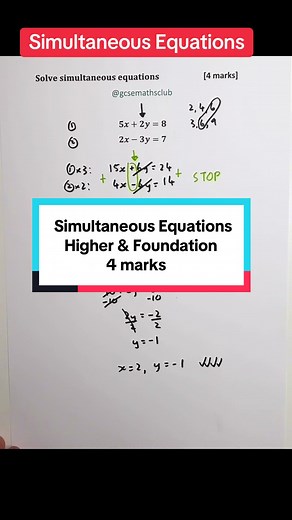 Simultaneous Equations
Solve simultaneous equations [4 marks]
@gcsemathsclub
2, 4, 6
3, 6, 9
① 5x + 2y = 8
② 2x − 3y = 7
①x3: 15x + 6y = 24
②x2: + 4x − 6y = 14 + STOP
Simultaneous Equations
Higher & Foundation
4 marks
-10 -10
2y = -2
2 2
y = -1
x = 2, y = -1